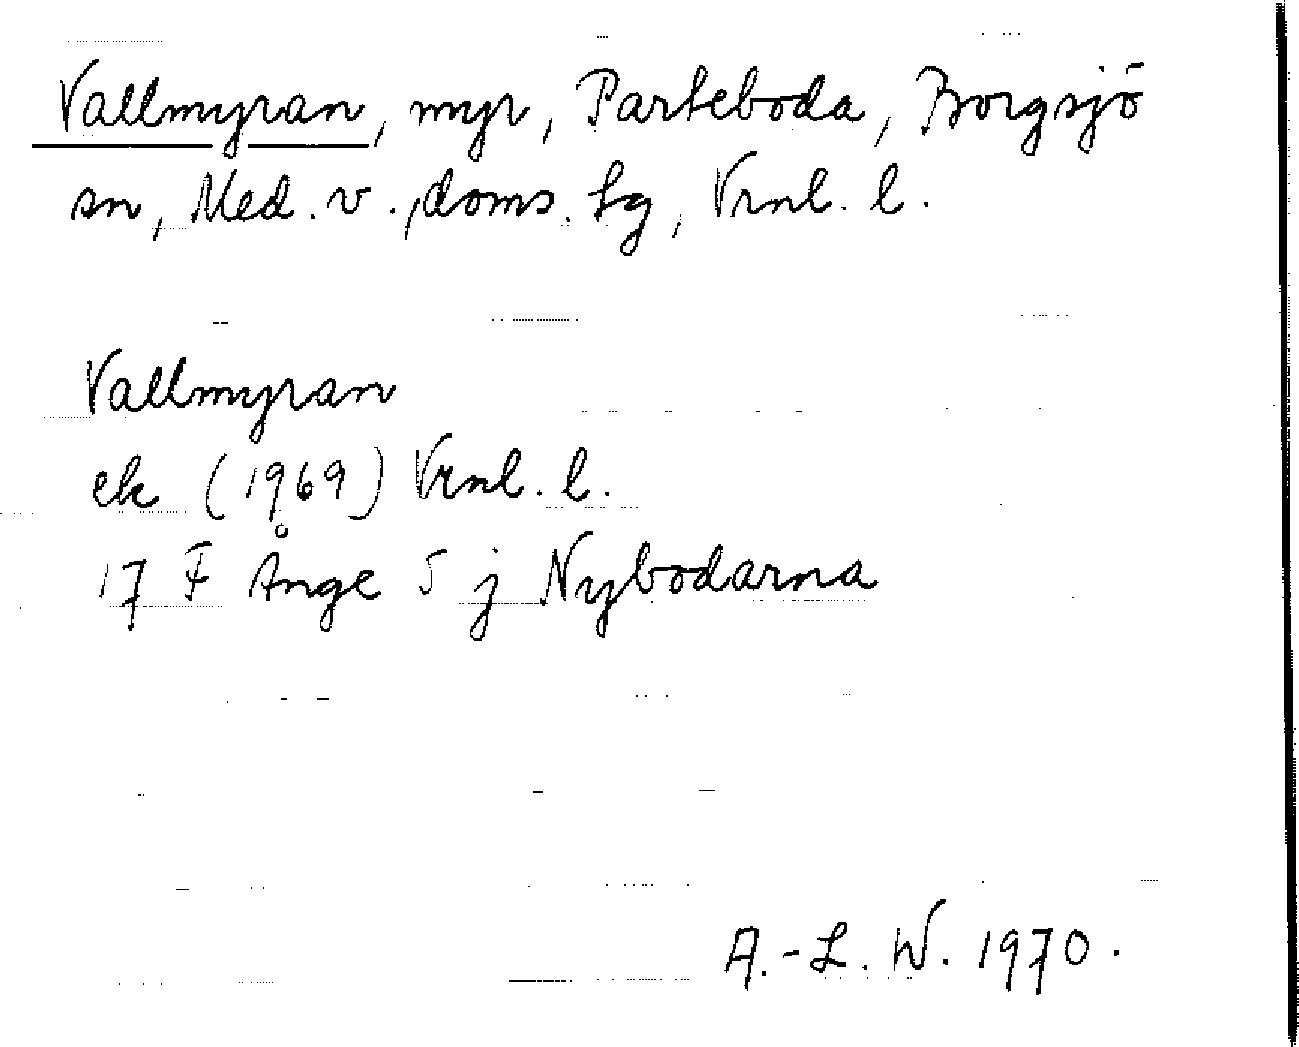 Vallmyran, myr, Parteboda, Borgsjö
sn, Med. v., doms. hg, Vrnl. l.
Vallmyran
ek (1969) Vrnl. l.
17 F Ånge 5 j Nybodarna
A.-L. W. 1970.